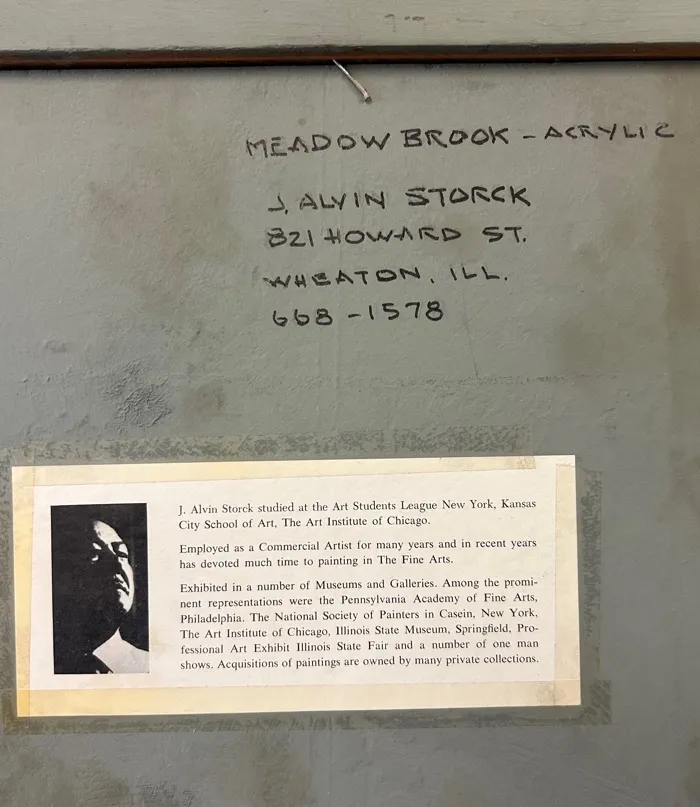 MEADOW BROOK - ACRYLIC
J. ALVIN STORCK
821 HOWARD ST.
WHEATON, ILL.
668-1578
J. Alvin Storck studied at the Art Students League New York, Kansas
City School of Art, The Art Institute of Chicago.
Employed as a Commercial Artist for many years and in recent years
has devoted much time to painting in The Fine Arts.
Exhibited in a number of Museums and Galleries. Among the promi-
nent representations were the Pennsylvania Academy of Fine Arts,
Philadelphia. The National Society of Painters in Casein, New York,
The Art Institute of Chicago, Illinois State Museum, Springfield, Pro-
fessional Art Exhibit Illinois State Fair and a number of one man
shows. Acquisitions of paintings are owned by many private collections.